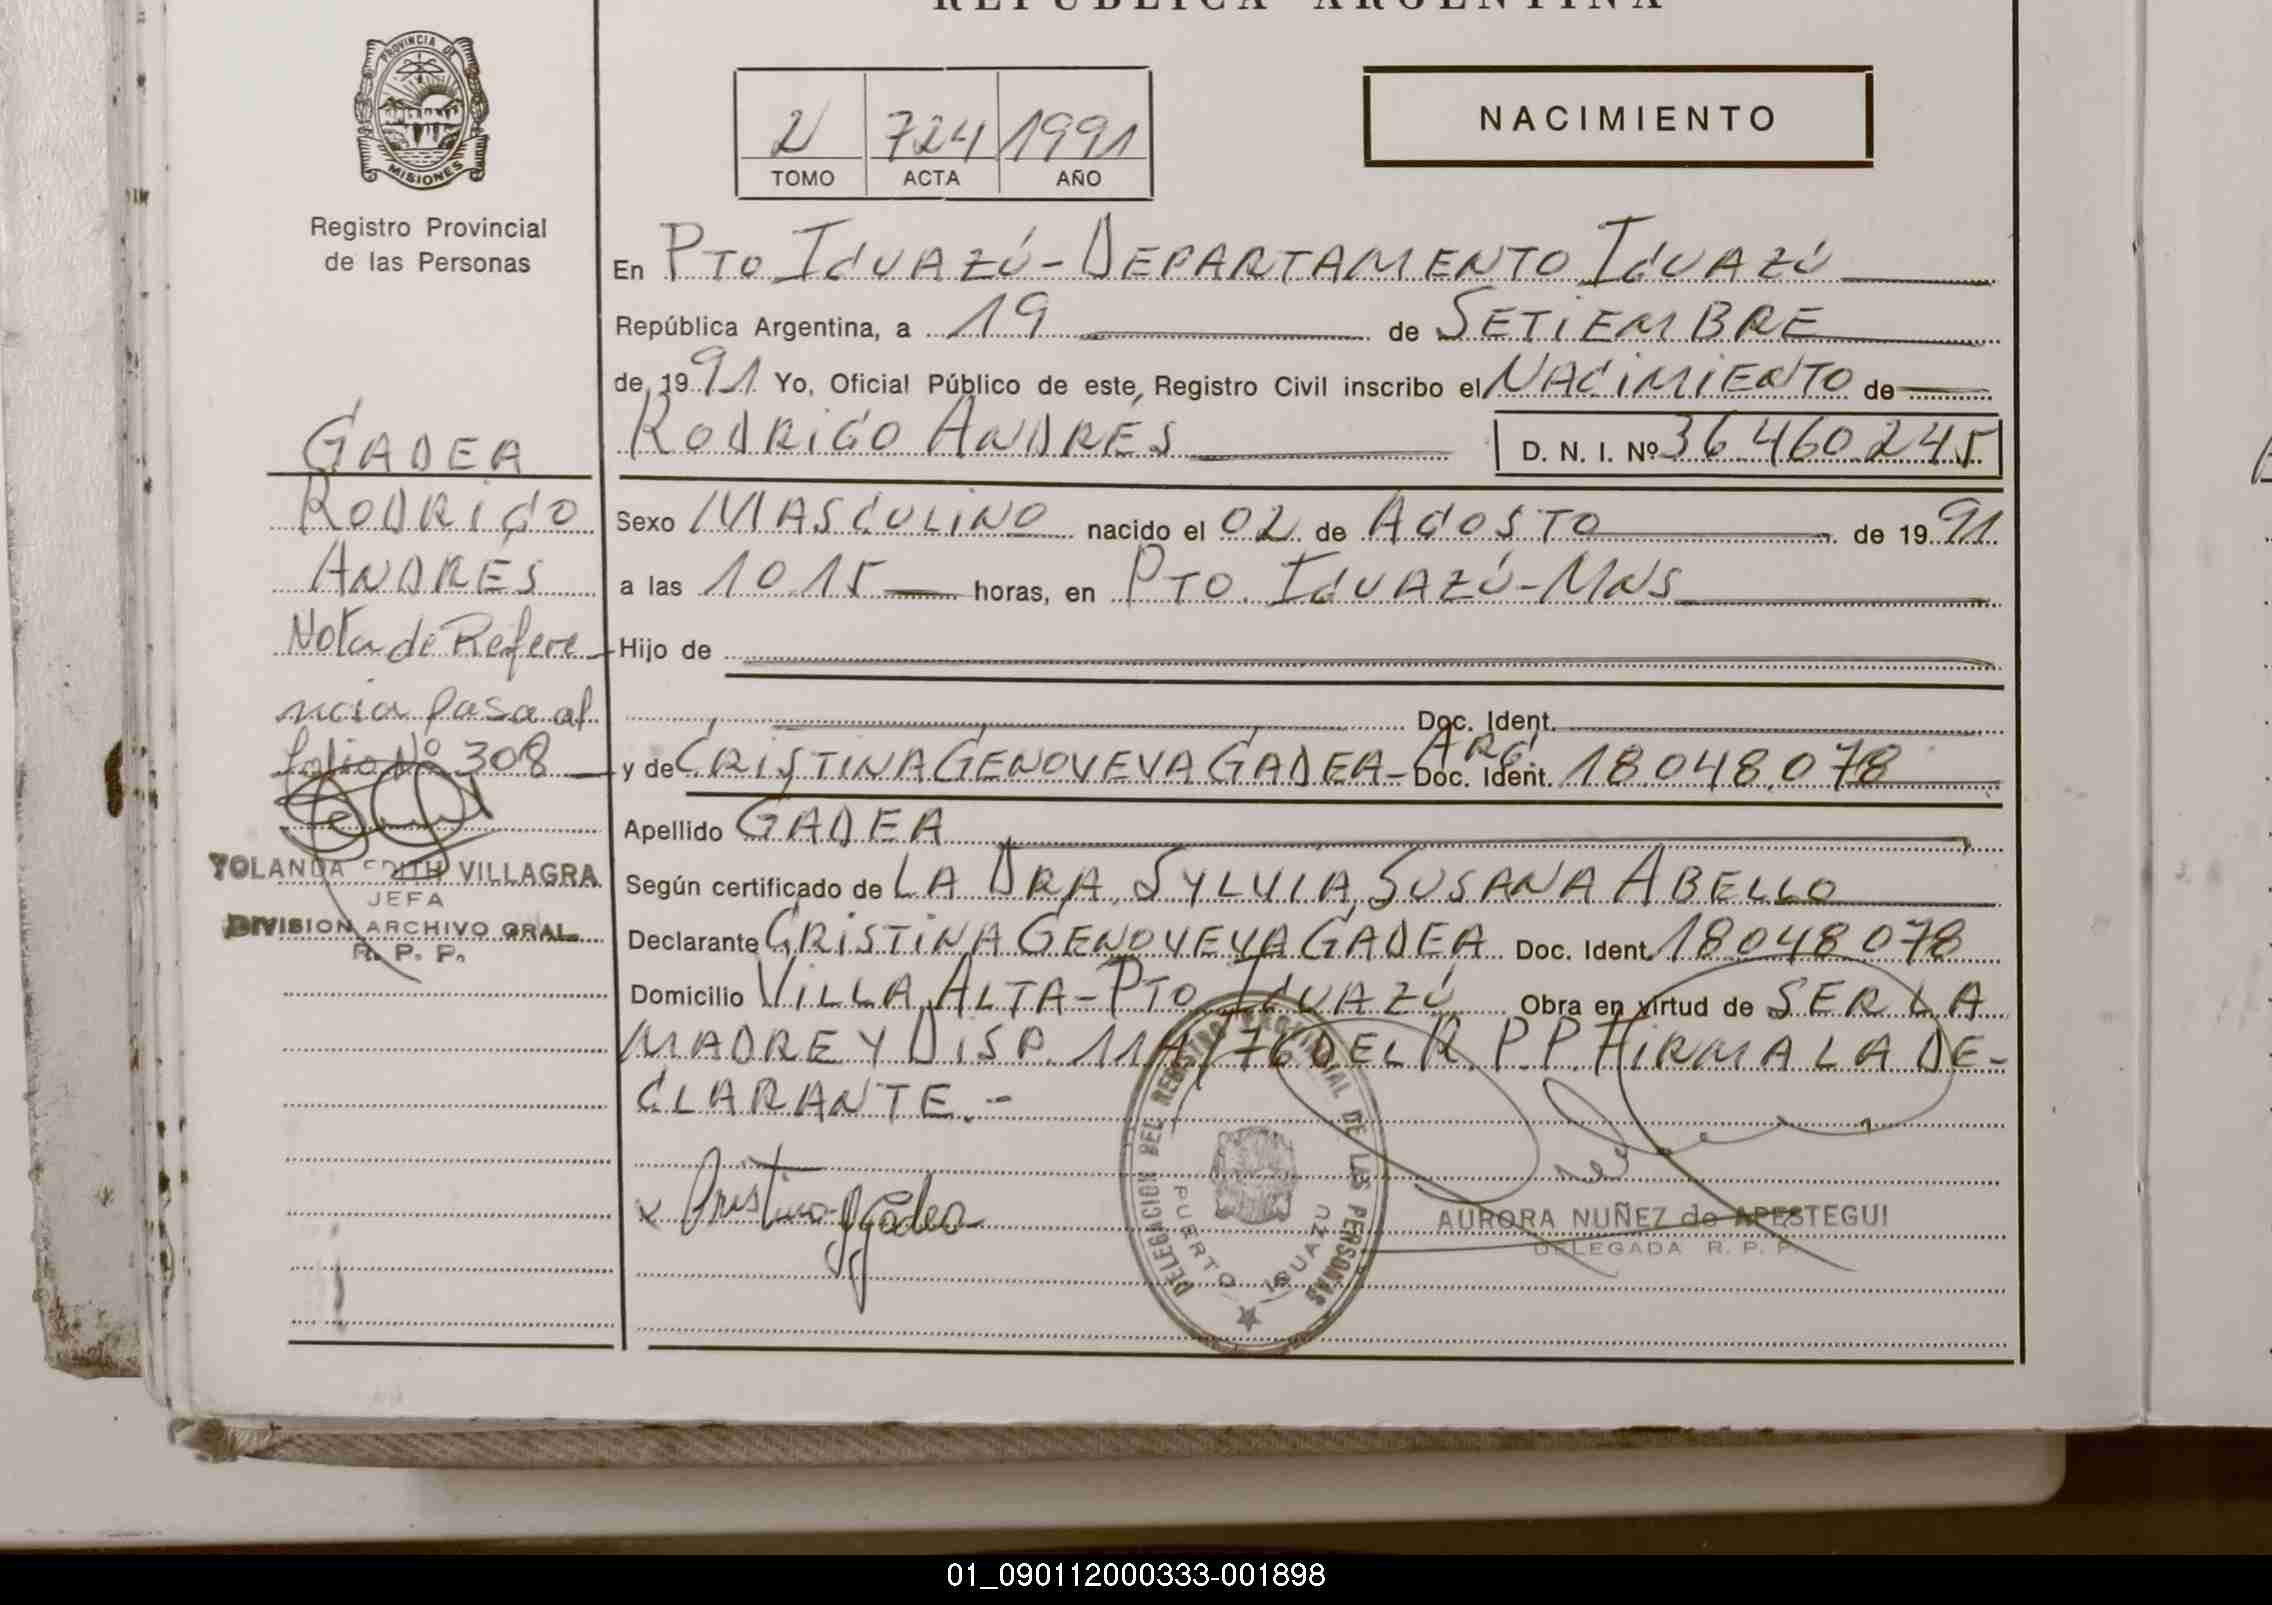 REPUBLICA ARGENTINA
PROVINCIA DE
MISIONES
Registro Provincial
de las Personas
2 724 1991
TOMO ACTA AÑO
NACIMIENTO
En PTO IGUAZÚ - DEPARTAMENTO IGUAZÚ
República Argentina, a 19 de SETIEMBRE
de 1991 Yo, Oficial Público de este Registro Civil inscribo el NACIMIENTO de
RODRIGO ANDRÉS D. N. I. Nº 36.460.245
Sexo MASCULINO nacido el 02 de AGOSTO de 1991
a las 10.15 horas, en PTO. IGUAZÚ - MNS
Hijo de
Doc. Ident.
y de CRISTINA GENOVEVA GADEA - ARG. Doc. Ident. 18.048.078
Apellido GADEA
Según certificado de LA DRA. SYLVIA SUSANA ABELLO
Declarante CRISTINA GENOVEVA GADEA Doc. Ident. 18.048.078
Domicilio VILLA ALTA - PTO IGUAZÚ Obra en virtud de SER LA
MADRE Y DISP. 114/76 DEL R.P.P. FIRMA LA DE-
CLARANTE.-
x Cristina G Gadea
DELEGACION DEL REGISTRO PROVINCIAL DE LAS PERSONAS
PUERTO IGUAZU
AURORA NUÑEZ de APESTEGUI
DELEGADA R. P. P.
GADEA
RODRIGO
ANDRÉS
Nota de Refere
ncia pasa al
folio Nº 308
YOLANDA EDITH VILLAGRA
JEFA
DIVISION ARCHIVO GRAL.
R. P. P.
01_090112000333-001898